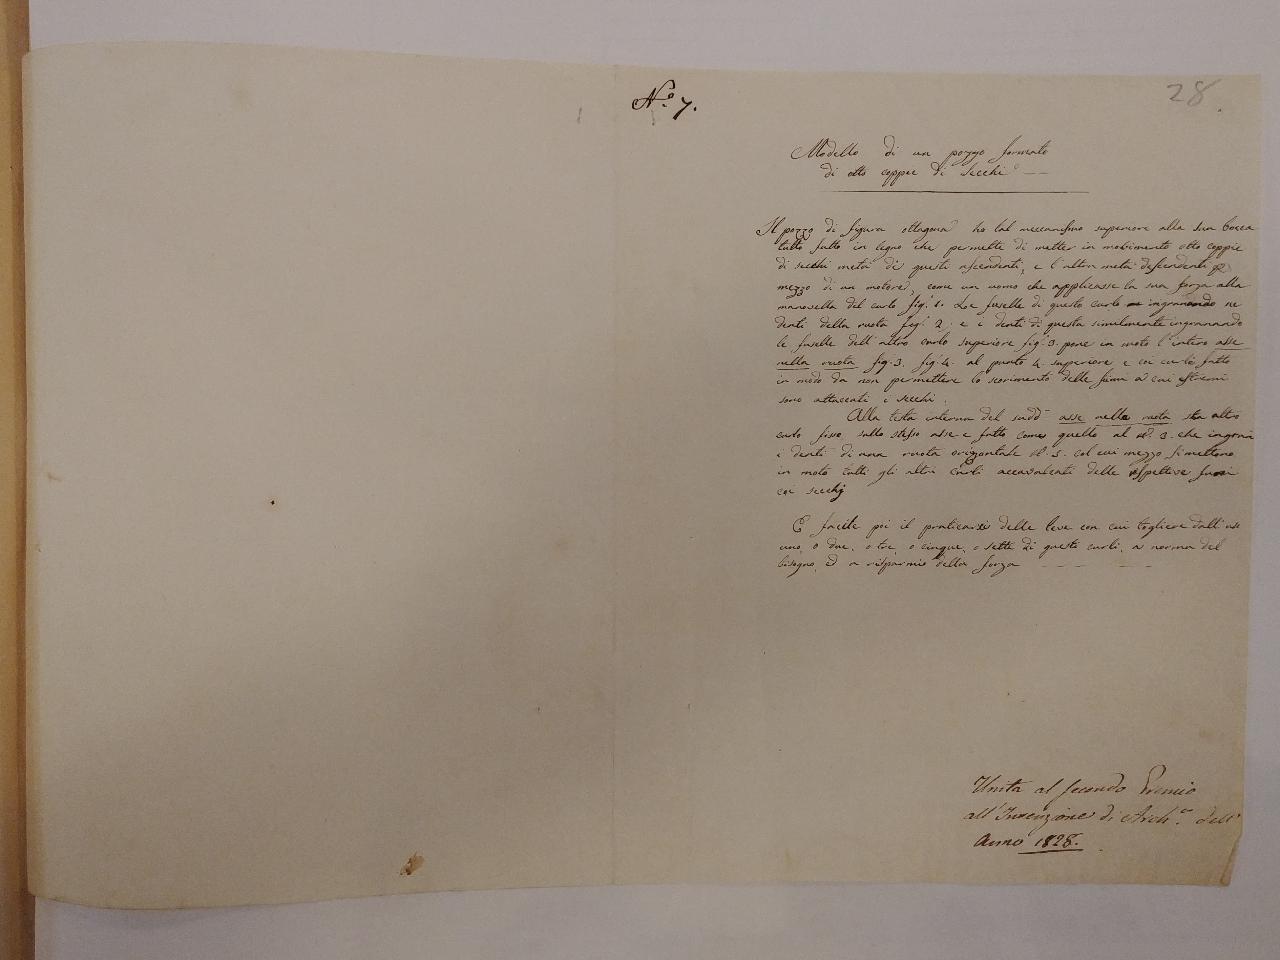 N.º 7.
28.
Modello di un pozzo formato
di otto coppie di secchi
Il pozzo di figura ottagona ha tal meccanismo superiore alla sua bocca
tutto fatto in legno che permette di metter in movimento otto coppie
di secchi metà di questi ascendenti, e l'altra metà descendenti per
mezzo di un motore, come un uomo che applicasse la sua forza alla
manovella del curlo fig. 1. Le fuselle di questo curlo ingranando ne
denti della ruota fig. 2. e i denti di questa similmente ingranando
le fuselle dell'altro curlo superiore fig. 3. pone in moto l'intero asse
nella ruota fig. 3. fig. 4. al punto 4. superiore e coi curli fatto
in modo da non permettere lo scorimento delle funi a cui estremi
sono attaccati i secchi.
Alla testa interna del sudd.º asse nella ruota sta altro
curlo fisso sullo stesso asse e fatto come quello al N. 3. che ingrana
i denti di una ruota orizzontale N. 5. col cui mezzo si mettono
in moto tutti gli altri curli accavalcati delle rispettive funi
coi secchi
È facile poi il praticarsi delle leve con cui togliere dall'uso
uno, o due, o tre, o cinque, o sette di questi curli, a norma del
bisogno, ed a risparmio della forza
Unita al secondo Premio
all'Invenzione di Arch.ra dell'
Anno 1828.